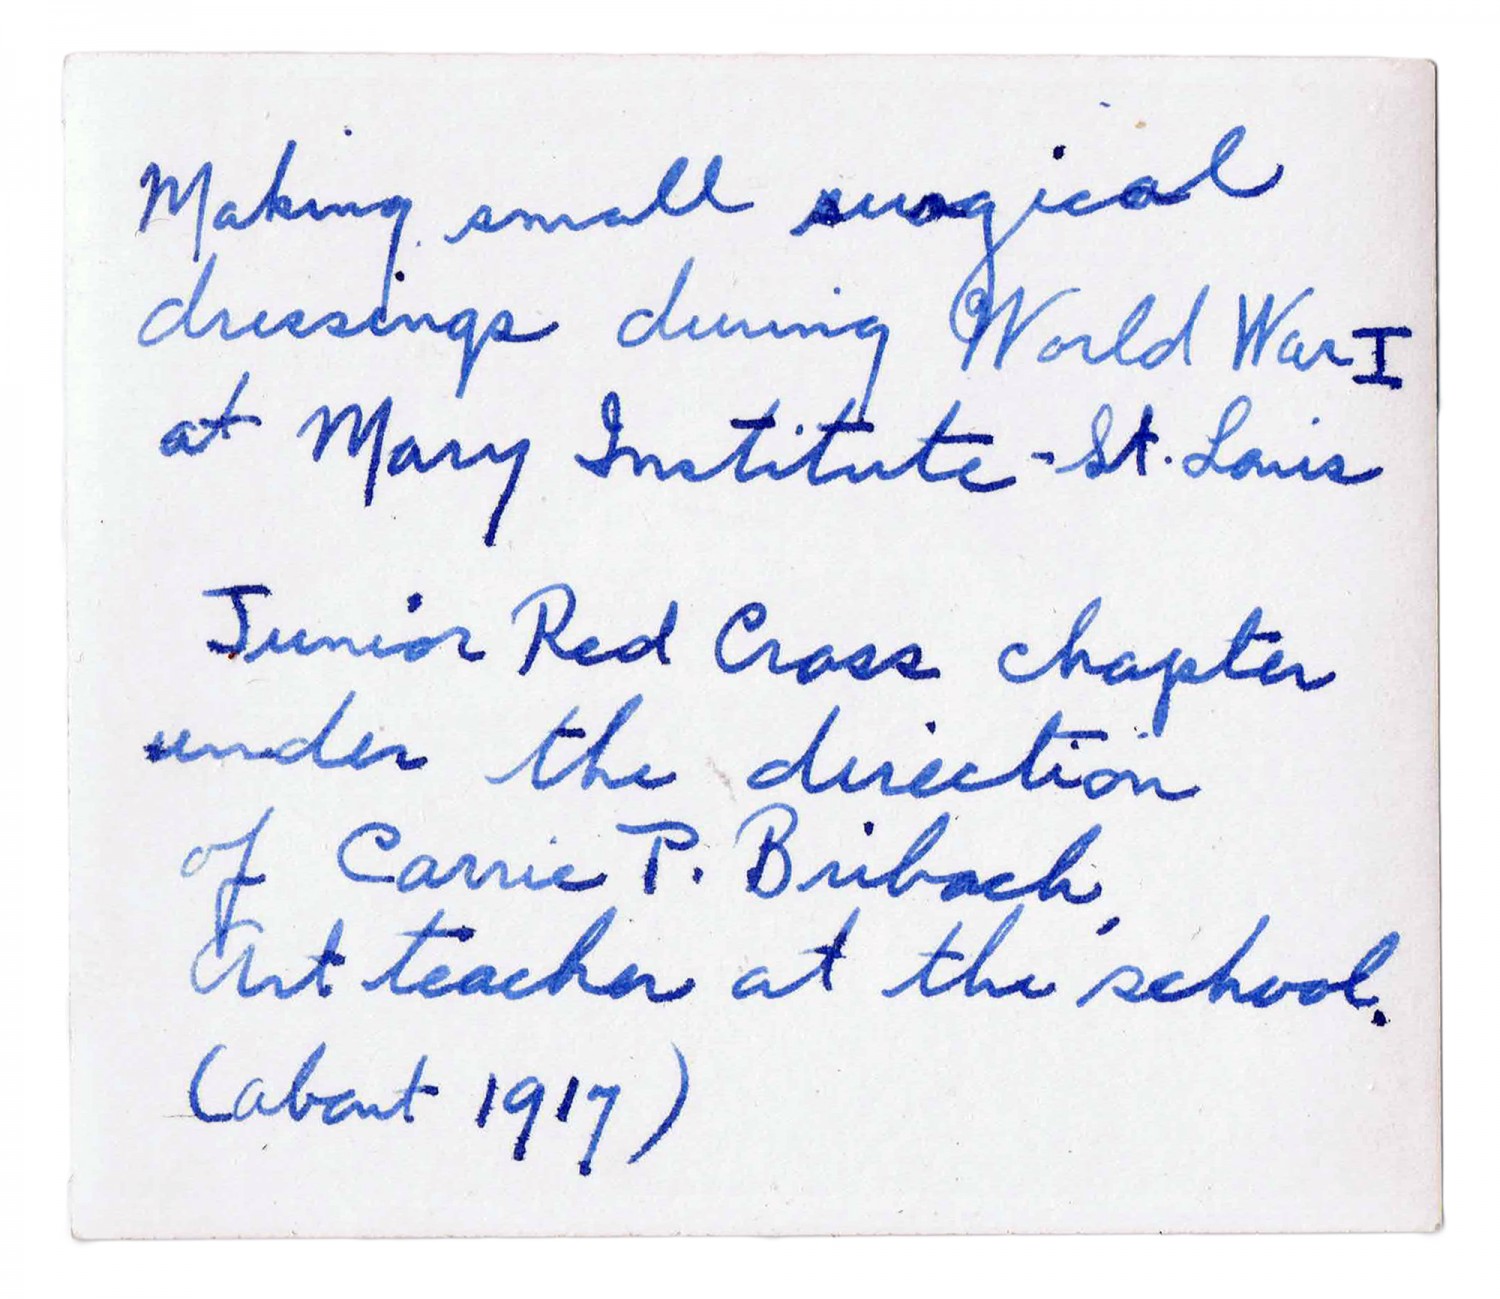 Making small surgical
dressings during World War I
at Mary Institute - St. Louis
Junior Red Cross chapter
under the direction
of Carrie P. Bribach,
Art teacher at the school.
(about 1917)